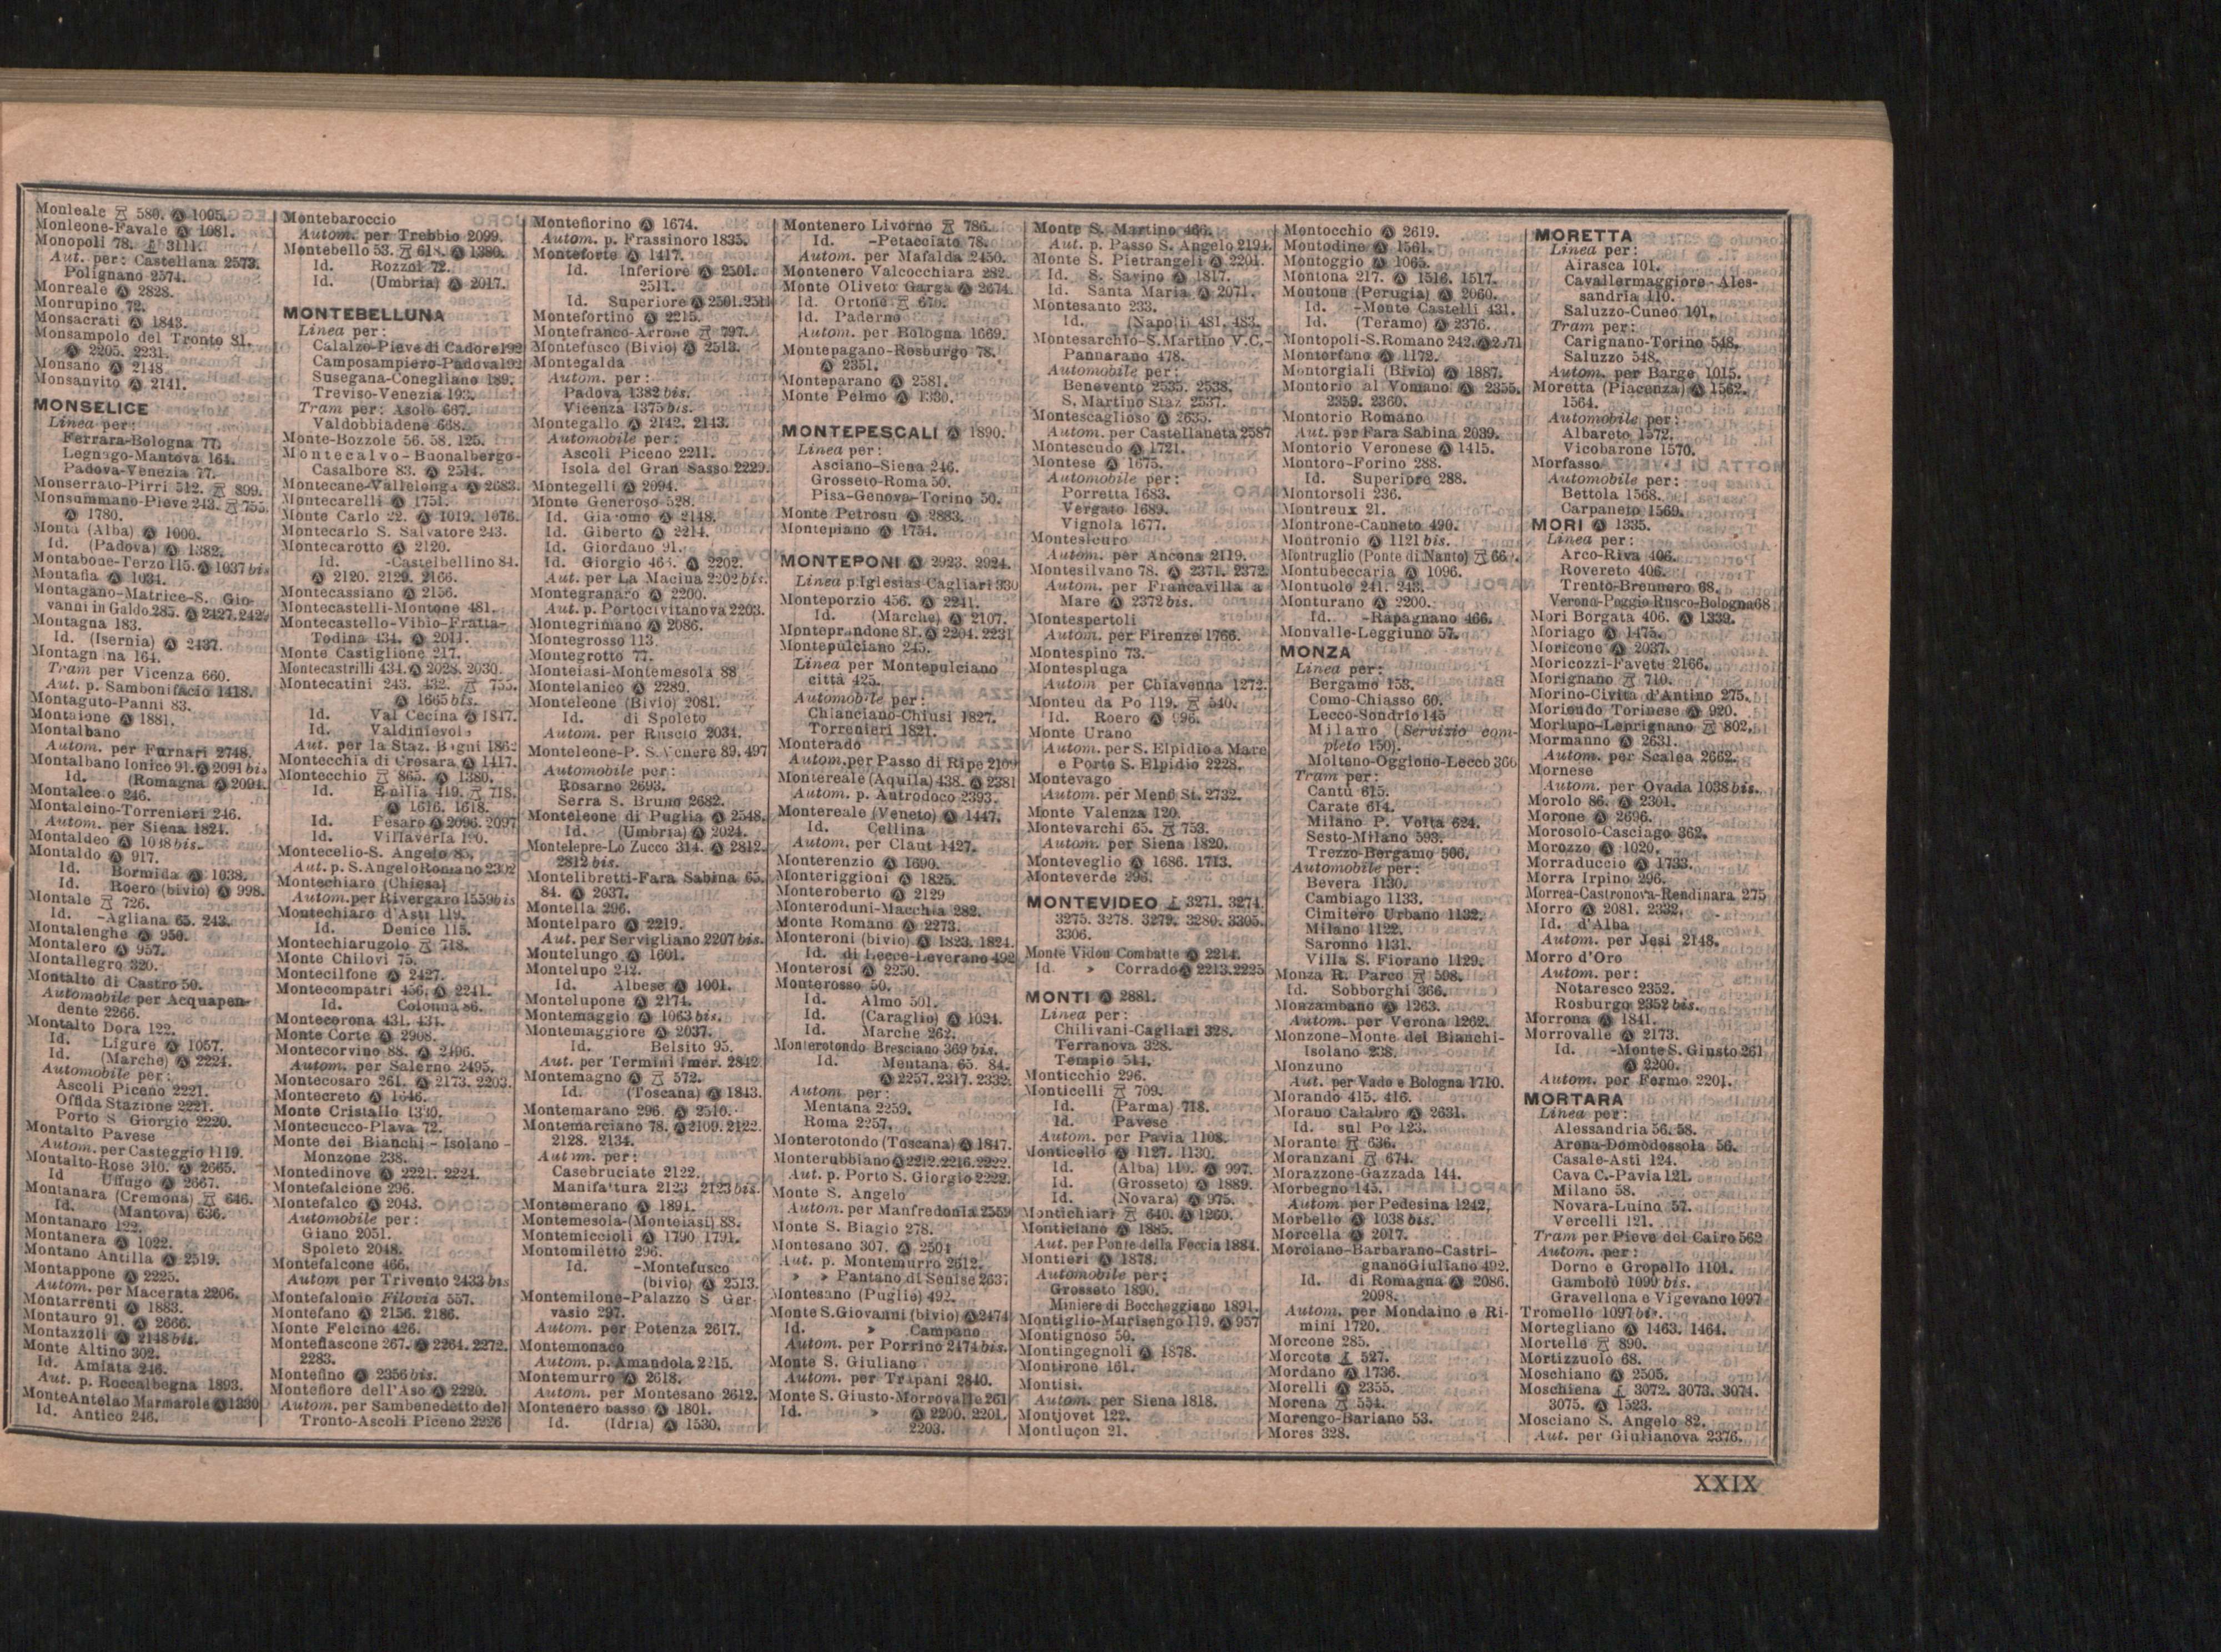 Monleale 580. Ⓐ 1095.
Monleone-Favale Ⓐ 1081.
Monopoli 78. ⚓ 3111.
Aut. per: Castellana 2573.
Polignano 2574.
Monreale Ⓐ 2828.
Monrupino 72.
Monsacrati Ⓐ 1843.
Monsampolo del Tronto 81.
Ⓐ 2205. 2231.
Monsano Ⓐ 2148
Monsanvito Ⓐ 2141.
MONSELICE
Linea per:
Ferrara-Bologna 77.
Legnago-Mantova 164.
Padova-Venezia 77.
Monserrato-Pirri 512. 899.
Monsummano-Pieve 243. 755.
Ⓐ 1780.
Montà (Alba) Ⓐ 1000.
Id. (Padova) Ⓐ 1382.
Montabone-Terzo 115. Ⓐ 1037 bis
Montafia Ⓐ 1034.
Montagano-Matrice-S. Gio-
vanni in Galdo 285. Ⓐ 2427.
Montagna 183.
Id. (Isernia) Ⓐ 2437.
Montagn na 164.
Tram per Vicenza 660.
Aut. p. Sambonifacio 1418.
Montaguto-Panni 83.
Montaione Ⓐ 1881.
Montalbano
Autom. per Furnari 2748.
Montalbano Ionico 91. Ⓐ 2091 bis
Id. (Romagna Ⓐ 2094.
Montalce o 246.
Montalcino-Torrenieri 246.
Autom. per Siena 1824.
Montaldeo Ⓐ 1038 bis.
Montaldo Ⓐ 917.
Id. Bormida Ⓐ 1038.
Id. Roero (bivio) Ⓐ 998.
Montale 726.
Id. -Agliana 65. 243.
Montalenghe Ⓐ 950.
Montalero Ⓐ 957.
Montallegro 320.
Montalto di Castro 50.
Automobile per Acquapen-
dente 2266.
Montalto Dora 122.
Id. Ligure Ⓐ 1057.
Id. (Marche) Ⓐ 2224.
Automobile per:
Ascoli Piceno 2221.
Offida Stazione 2221.
Porto S Giorgio 2220.
Montalto Pavese
Autom. per Casteggio 1119.
Montalto-Rose 310. Ⓐ 2665.
Id Uffugo Ⓐ 2667.
Montanara (Cremona) 646.
Id. (Mantova) 636.
Montanaro 122.
Montanera Ⓐ 1022.
Montano Antilla Ⓐ 2519.
Montappone Ⓐ 2225.
Autom. per Macerata 2206.
Montarrenti Ⓐ 1883.
Montauro 91. Ⓐ 2666.
Montazzoli Ⓐ 2148 bis.
Monte Altino 302.
Id. Amiata 246.
Aut. p. Roccalbegna 1893.
Monte Antelao Marmarole Ⓐ 1330
Id. Antico 246.
Montebaroccio
Autom. per Trebbio 2099.
Montebello 53. 618. Ⓐ 1380.
Id. Rozzol 72.
Id. (Umbria) Ⓐ 2017.
MONTEBELLUNA
Linea per:
Calalzo-Pieve di Cadore 192
Camposampiero-Padova 192
Susegana-Conegliano 189.
Treviso-Venezia 193.
Tram per: Asolo 667.
Valdobbiadene 668.
Monte-Bozzole 56. 58. 125.
Montecalvo-Buonalbergo-
Casalbore 83. Ⓐ 2514.
Montecane-Vallelonga Ⓐ 2683.
Montecarelli Ⓐ 1751.
Monte Carlo 22. Ⓐ 1019. 1076.
Montecarlo S. Salvatore 243.
Montecarotto Ⓐ 2120.
Id. -Castelbellino 84.
Ⓐ 2120. 2129. 2166.
Montecassiano Ⓐ 2156.
Montecastelli-Montone 481.
Montecastello-Vibio-Fratta-
Todina 434. Ⓐ 2011.
Monte Castiglione 217.
Montecastrilli 434. Ⓐ 2028. 2030.
Montecatini 243. 432. 755.
Ⓐ 1665 bis.
Id. Val Cecina Ⓐ 1847.
Id. Valdinievole
Aut. per la Staz. Bagni 186
Montecchia di Crosara Ⓐ 1417.
Montecchio 865. Ⓐ 1380.
Id. Emilia 419. 718.
Ⓐ 1616. 1618.
Id. Pesaro Ⓐ 2096. 2097
Id. Villaverla 190.
Montecelio-S. Angelo 85.
Aut. p. S. Angelo Romano 2302
Montechiaro (Chiesa)
Autom. per Rivergaro 1559 bis
Montechiaro d'Asti 119.
Id. Denice 115.
Montechiarugolo 718.
Monte Chilovi 75.
Montecilfone Ⓐ 2427.
Montecompatri 456. Ⓐ 2241.
Id. Colonna 86.
Montecorona 431. 434.
Monte Corte Ⓐ 2968.
Montecorvino 88. Ⓐ 2496.
Autom. per Salerno 2495.
Montecosaro 261. Ⓐ 2173. 2203.
Montecreto Ⓐ 1646.
Monte Cristallo 1330.
Montecucco-Plava 72.
Monte dei Bianchi-Isolano-
Monzone 238.
Montedinove Ⓐ 2221. 2224.
Montefalcione 296.
Montefalco Ⓐ 2043.
Automobile per:
Giano 2051.
Spoleto 2048.
Montefalcone 466.
Autom per Trivento 2433 bis
Montefalonio Filovia 557.
Montefano Ⓐ 2156. 2186.
Monte Felcino 426.
Montefiascone 267. Ⓐ 2264. 2272.
2283.
Montefino Ⓐ 2356 bis.
Montefiore dell'Aso Ⓐ 2220.
Autom. per Sambenedetto del
Tronto-Ascoli Piceno 2226
Montefiorino Ⓐ 1674.
Autom. p. Frassinoro 1835.
Monteforte Ⓐ 1417.
Id. Inferiore Ⓐ 2501.
2511.
Id. Superiore Ⓐ 2501. 2511
Montefortino Ⓐ 2215.
Montefranco-Arrone 797.
Montefusco (Bivio) Ⓐ 2513.
Montegalda
Autom. per:
Padova 1382 bis.
Vicenza 1375 bis.
Montegallo Ⓐ 2142. 2143.
Automobile per:
Ascoli Piceno 2211.
Isola del Gran Sasso 2229.
Montegelli Ⓐ 2094.
Monte Generoso 528.
Id. Gia omo Ⓐ 2148.
Id. Giberto Ⓐ 2214.
Id. Giordano 91.
Id. Giorgio 46 . Ⓐ 2202.
Aut. per La Macina 2202 bis.
Montegranaro Ⓐ 2200.
Aut. p. Portocivitanova 2203.
Montegrimano Ⓐ 2086.
Montegrosso 113
Montegrotto 77.
Monteiasi-Montemesola 88
Montelanico Ⓐ 2289.
Monteleone (Bivio) 2081.
Id. di Spoleto
Autom. per Ruscio 2034.
Monteleone-P. S. Venere 89. 497
Automobile per:
Rosarno 2693.
Serra S. Bruno 2682.
Monteleone di Puglia Ⓐ 2548.
Id. (Umbria) Ⓐ 2024.
Montelepre-Lo Zucco 314. Ⓐ 2812.
2812 bis.
Montelibretti-Fara Sabina 65.
84. Ⓐ 2037.
Montella 296.
Montelparo Ⓐ 2219.
Aut. per Servigliano 2207 bis.
Montelungo Ⓐ 1601.
Montelupo 242.
Id. Albese Ⓐ 1001.
Montelupone Ⓐ 2174.
Montemaggio Ⓐ 1063 bis.
Montemaggiore Ⓐ 2037.
Id. Belsito 95.
Aut. per Termini Imer. 2842
Montemagno Ⓐ 572.
Id. (Toscana) Ⓐ 1843.
Montemarano 296. Ⓐ 2510.
Montemarciano 78. Ⓐ 2109. 2122.
2128. 2134.
Aut m. per:
Casebruciate 2122.
Manifattura 2123 2123 bis.
Montemerano Ⓐ 1891.
Montemesola-(Monteiasi) 88.
Montemiccioli Ⓐ 1790 1791.
Montemiletto 296.
Id. -Montefusco
(bivio) Ⓐ 2513.
Montemilone-Palazzo S Ger-
vasio 297.
Autom. per Potenza 2617.
Montemonaco
Autom. p. Amandola 2215.
Montemurro Ⓐ 2618.
Autom. per Montesano 2612.
Montenero basso Ⓐ 1801.
Id. (Idria) Ⓐ 1530.
Montenero Livorno 786.
Id. -Petacciato 78.
Autom. per Mafalda 2450.
Montenero Valcocchiara 282.
Monte Oliveto Garga Ⓐ 2674.
Id. Ortone 676.
Id. Paderno
Autom. per Bologna 1669.
Montepagano-Rosburgo 78.
Ⓐ 2351.
Monteparano Ⓐ 2581.
Monte Pelmo Ⓐ 1330.
MONTEPESCALI Ⓐ 1890.
Linea per:
Asciano-Siena 246.
Grosseto-Roma 50.
Pisa-Genova-Torino 50.
Monte Petrosu Ⓐ 2883.
Montepiano Ⓐ 1754.
MONTEPONI Ⓐ 2923. 2924.
Linea p. Iglesias-Cagliari 330
Monteporzio 456. Ⓐ 2241.
Id. (Marche) Ⓐ 2107.
Monteprandone 81. Ⓐ 2204. 2231
Montepulciano 245.
Linea per Montepulciano
città 425.
Automobile per:
Chianciano-Chiusi 1827.
Torrenieri 1821.
Monterado
Autom. per Passo di Ripe 2109
Montereale (Aquila) 438. Ⓐ 2381
Autom. p. Antrodoco 2393.
Montereale (Veneto) Ⓐ 1447.
Id. Cellina
Autom. per Claut 1427.
Monterenzio Ⓐ 1690.
Monteriggioni Ⓐ 1825.
Monteroberto Ⓐ 2129
Monteroduni-Macchia 282.
Monte Romano Ⓐ 2273.
Monteroni (bivio) Ⓐ 1823. 1824.
Id. di Lecce-Leverano 492
Monterosi Ⓐ 2250.
Monterosso 50.
Id. Almo 501.
Id. (Caraglio) Ⓐ 1024.
Id. Marche 262.
Monterotondo Bresciano 369 bis.
Id. Mentana 65. 84.
Ⓐ 2257. 2317. 2332.
Autom per:
Mentana 2259.
Roma 2257.
Monterotondo (Toscana) Ⓐ 1847.
Monterubbiano Ⓐ 2212. 2216. 2222.
Aut. p. Porto S. Giorgio 2222.
Monte S. Angelo
Autom. per Manfredonia 2559
Monte S. Biagio 278.
Montesano 307. Ⓐ 2501
Aut. p. Montemurro 2612.
» » Pantano di Senise 2637
Montesano (Puglie) 492.
Monte S. Giovanni (bivio) Ⓐ 2474
Id. » Campano
Autom. per Porrino 2474 bis.
Monte S. Giuliano
Autom. per Trapani 2840.
Monte S. Giusto-Morrovalle 261
Id. » Ⓐ 2200. 2201.
2203.
Monte S. Martino 466.
Aut. p. Passo S. Angelo 2194.
Monte S. Pietrangeli Ⓐ 2201.
Id. S. Savino Ⓐ 1817.
Id. Santa Maria Ⓐ 2071.
Montesanto 233.
Id. (Napoli) 481. 483.
Montesarchio-S. Martino V. C.-
Pannarano 478.
Automobile per:
Benevento 2535. 2538.
S. Martino Staz 2537.
Montescaglioso Ⓐ 2635.
Autom. per Castellaneta 2587
Montescudo Ⓐ 1721.
Montese Ⓐ 1675.
Automobile per:
Porretta 1683.
Vergato 1689.
Vignola 1677.
Montesicuro
Autom. per Ancona 2119.
Montesilvano 78. Ⓐ 2371. 2372.
Autom. per Francavilla a
Mare Ⓐ 2372 bis.
Montespertoli
Autom. per Firenze 1766.
Montespino 73.
Montespluga
Autom per Chiavenna 1272.
Monteu da Po 119. 540.
Id. Roero Ⓐ 996.
Monte Urano
Autom. per S. Elpidio a Mare
e Porto S. Elpidio 2228.
Montevago
Autom. per Menfi St. 2732.
Monte Valenza 120.
Montevarchi 65. 753.
Autom. per Siena 1820.
Monteveglio Ⓐ 1686. 1713.
Monteverde 296.
MONTEVIDEO ⚓ 3271. 3274.
3275. 3278. 3279. 3280. 3305.
3306.
Monte Vidon Combatte Ⓐ 2214.
Id. » Corrado Ⓐ 2213. 2225
MONTI Ⓐ 2881.
Linea per:
Chilivani-Cagliari 328.
Terranova 328.
Tempio 514.
Monticchio 296.
Monticelli 709.
Id. (Parma) 718.
Id. Pavese
Autom. per Pavia 1108.
Monticello Ⓐ 1127. 1130.
Id. (Alba) 110. Ⓐ 997.
Id. (Grosseto) Ⓐ 1889.
Id. (Novara) Ⓐ 975.
Montichiari 640. Ⓐ 1260.
Monticiano Ⓐ 1885.
Aut. per Ponte della Feccia 1884.
Montieri Ⓐ 1878.
Automobile per:
Grosseto 1890.
Miniere di Boccheggiano 1891.
Montiglio-Murisengo 119. Ⓐ 957
Montignoso 50.
Montingegnoli Ⓐ 1878.
Montirone 161.
Montisi.
Autom. per Siena 1818.
Montjovet 122.
Montluçon 21.
Montocchio Ⓐ 2619.
Montodine Ⓐ 1561.
Montoggio Ⓐ 1065.
Montona 217. Ⓐ 1516. 1517.
Montone (Perugia) Ⓐ 2060.
Id. -Monte Castelli 431.
Id. (Teramo) Ⓐ 2376.
Montopoli-S. Romano 242. Ⓐ 2 71
Montorfano Ⓐ 1172.
Montorgiali (Bivio) Ⓐ 1887.
Montorio al Vomano Ⓐ 2355.
2359. 2360.
Montorio Romano
Aut. per Fara Sabina 2039.
Montorio Veronese Ⓐ 1415.
Montoro-Forino 288.
Id. Superiore 288.
Montorsoli 236.
Montreux 21.
Montrone-Canneto 490.
Montronio Ⓐ 1121 bis.
Montruglio (Ponte di Nanto) 66 .
Montubeccaria Ⓐ 1096.
Montuolo 241. 243.
Monturano Ⓐ 2200.
Id. -Rapagnano 466.
Monvalle-Leggiuno 57.
MONZA
Linea per:
Bergamo 153.
Como-Chiasso 60.
Lecco-Sondrio 145
Milano (Servizio com-
pleto 150).
Molteno-Oggiono-Lecco 366
Tram per:
Cantù 615.
Carate 614.
Milano P. Volta 624.
Sesto-Milano 593.
Trezzo-Bergamo 566.
Automobile per:
Bevera 1130.
Cambiago 1133.
Cimitero Urbano 1132.
Milano 1122.
Saronno 1131.
Villa S. Fiorano 1129.
Monza R. Parco 598.
Id. Sobborghi 366.
Monzambano Ⓐ 1263.
Autom. per Verona 1262.
Monzone-Monte dei Bianchi-
Isolano 238.
Monzuno
Aut. per Vado e Bologna 1710.
Morando 415. 416.
Morano Calabro Ⓐ 2631.
Id. sul Po 123.
Morante 636.
Moranzani 674.
Morazzone-Gazzada 144.
Morbegno 145.
Autom per Pedesina 1242.
Morbello Ⓐ 1038 bis.
Morcella Ⓐ 2017.
Morciano-Barbarano-Castri-
gnano Giuliano 492.
Id. di Romagna Ⓐ 2086.
2098.
Autom. per Mondaino e Ri-
mini 1720.
Morcone 285.
Morcote ⚓ 527.
Mordano Ⓐ 1736.
Morelli Ⓐ 2355.
Morena 554.
Morengo-Bariano 53.
Mores 328.
MORETTA
Linea per:
Airasca 101.
Cavallermaggiore-Ales-
sandria 110.
Saluzzo-Cuneo 101.
Tram per:
Carignano-Torino 548.
Saluzzo 548.
Autom. per Barge 1015.
Moretta (Piacenza) Ⓐ 1562.
1564.
Automobile per:
Albareto 1572.
Vicobarone 1570.
Morfasso
Automobile per:
Bettola 1568.
Carpaneto 1569.
MORI Ⓐ 1335.
Linea per:
Arco-Riva 406.
Rovereto 406.
Trento-Brennero 68.
Verona-Poggio Rusco-Bologna 68
Mori Borgata 406. Ⓐ 1339.
Moriago Ⓐ 1475.
Moricone Ⓐ 2037.
Moricozzi-Favete 2166.
Morignano 710.
Morino-Civita d'Antino 275.
Moriondo Torinese Ⓐ 920.
Morlupo-Leprignano 802.
Mormanno Ⓐ 2631.
Autom. per Scalea 2662.
Mornese
Autom. per Ovada 1038 bis.
Morolo 86. Ⓐ 2301.
Morone Ⓐ 2696.
Morosolo-Casciago 362.
Morozzo Ⓐ 1020.
Morraduccio Ⓐ 1733.
Morra Irpino 296.
Morrea-Castronova-Rendinara 275
Morro Ⓐ 2081. 2332.
Id. d'Alba
Autom. per Jesi 2148.
Morro d'Oro
Autom. per:
Notaresco 2352.
Rosburgo 2352 bis.
Morrona Ⓐ 1841.
Morrovalle Ⓐ 2173.
Id. -Monte S. Giusto 261
Ⓐ 2200.
Autom. per Fermo 2201.
MORTARA
Linea per:
Alessandria 56. 58.
Arona-Domodossola 56.
Casale-Asti 124.
Cava C.-Pavia 121.
Milano 58.
Novara-Luino 57.
Vercelli 121.
Tram per Pieve del Cairo 562
Autom. per:
Dorno e Gropello 1101.
Gambolò 1099 bis.
Gravellona e Vigevano 1097
Tromello 1097 bis.
Mortegliano Ⓐ 1463. 1464.
Mortelle 890.
Mortizzuolo 68.
Moschiano Ⓐ 2505.
Moschiena ⚓ 3072. 3073. 3074.
3075. Ⓐ 1523.
Mosciano S. Angelo 82.
Aut. per Giulianova 2376.
XXIX